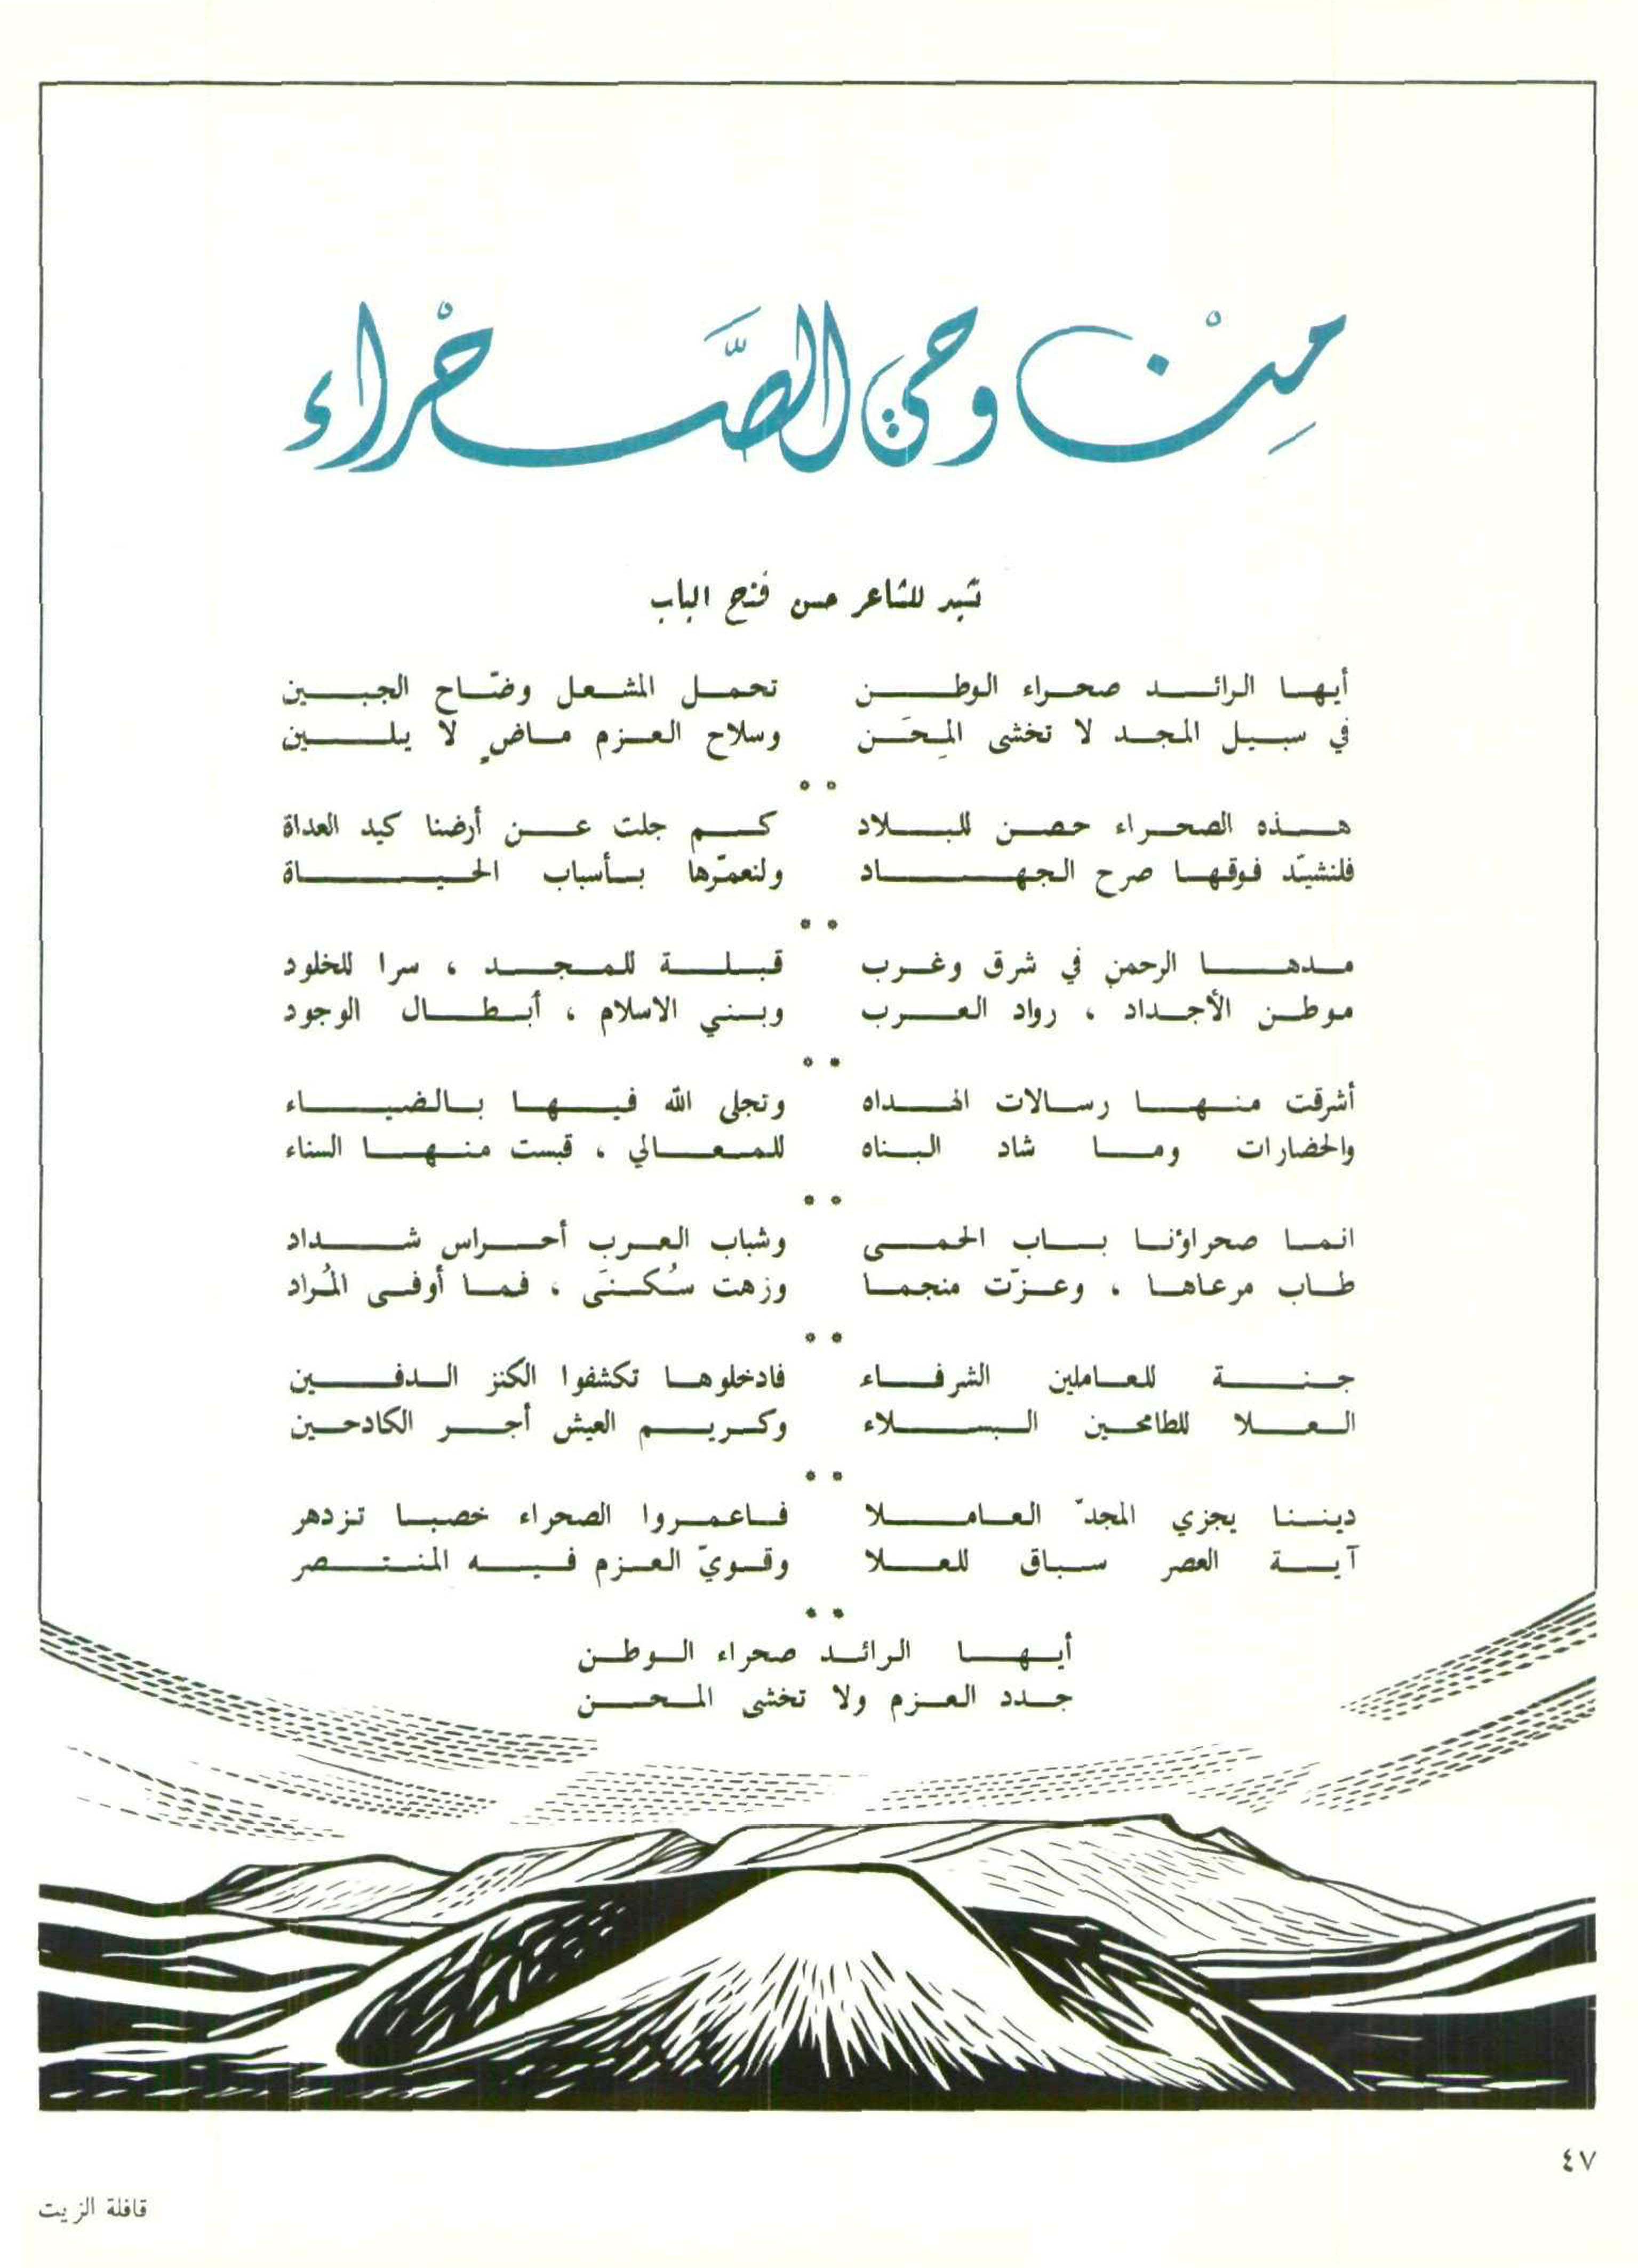 مِنْ وحي الصَّحْراء
نشيد للشاعر حسن فتح الباب
أيها الرائد صحراء الوطن تحمل المشعل وضّاح الجبين
في سبيل المجد لا تخشى المِحَن وسلاح العزم ماضٍ لا يلين
* *
هذه الصحراء حصن للبلاد كم جلت عن أرضنا كيد العداة
فلنشيّد فوقها صرح الجهاد ولنعمّرها بأسباب الحياة
* *
مدها الرحمن في شرق وغرب قبلة للمجد ، سرا للخلود
موطن الأجداد ، رواد العرب وبني الاسلام ، أبطال الوجود
* *
أشرقت منها رسالات الهداه وتجلى الله فيها بالضياء
والحضارات وما شاد البناه للمعالي ، قبست منها السناء
* *
انما صحراؤنا باب الحمى وشباب العرب أحراس شداد
طاب مرعاها ، وعزّت منجما وزهت سُكنَى ، فما أوفى المُراد
* *
جنة للعاملين الشرفاء فادخلوها تكشفوا الكنز الدفين
العلا للطامحين البسلاء وكريم العيش أجر الكادحين
* *
ديننا يجزي المجدّ العاملا فاعمروا الصحراء خصبا تزدهر
آية العصر سباق للعلا وقويّ العزم فيه المنتصر
* *
أيها الرائد صحراء الوطن
جدد العزم ولا تخشى المحن
٤٧
قافلة الزيت